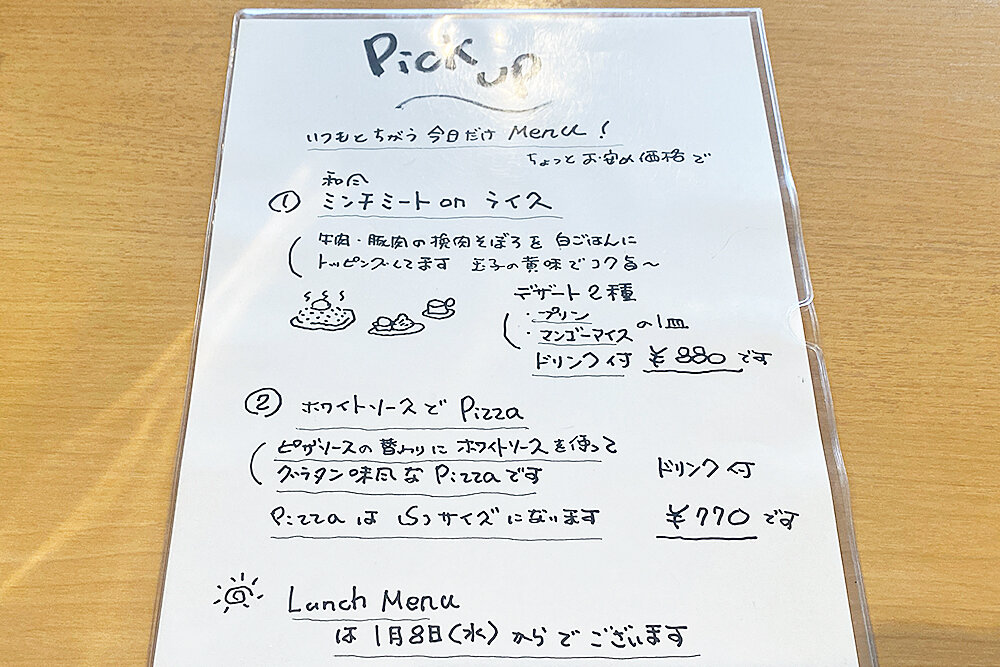 Pick up
いつもとちがう 今日だけ Menu !
ちょっと お安め 価格で
和風
① ミンチミート on ライス
牛肉・豚肉の挽肉そぼろを 白ごはんに
トッピングしてます 玉子の黄味でコク旨～
デザート2種
・プリン
・マンゴーアイス の1皿
ドリンク付 ¥880 です
② ホワイトソースで Pizza
ピザソースの替わりに ホワイトソースを使って
グラタン味風な Pizzaです
ドリンク付
Pizza は (S) サイズになります
¥770 です
Lunch Menu
は 1月8日(水) からでございます